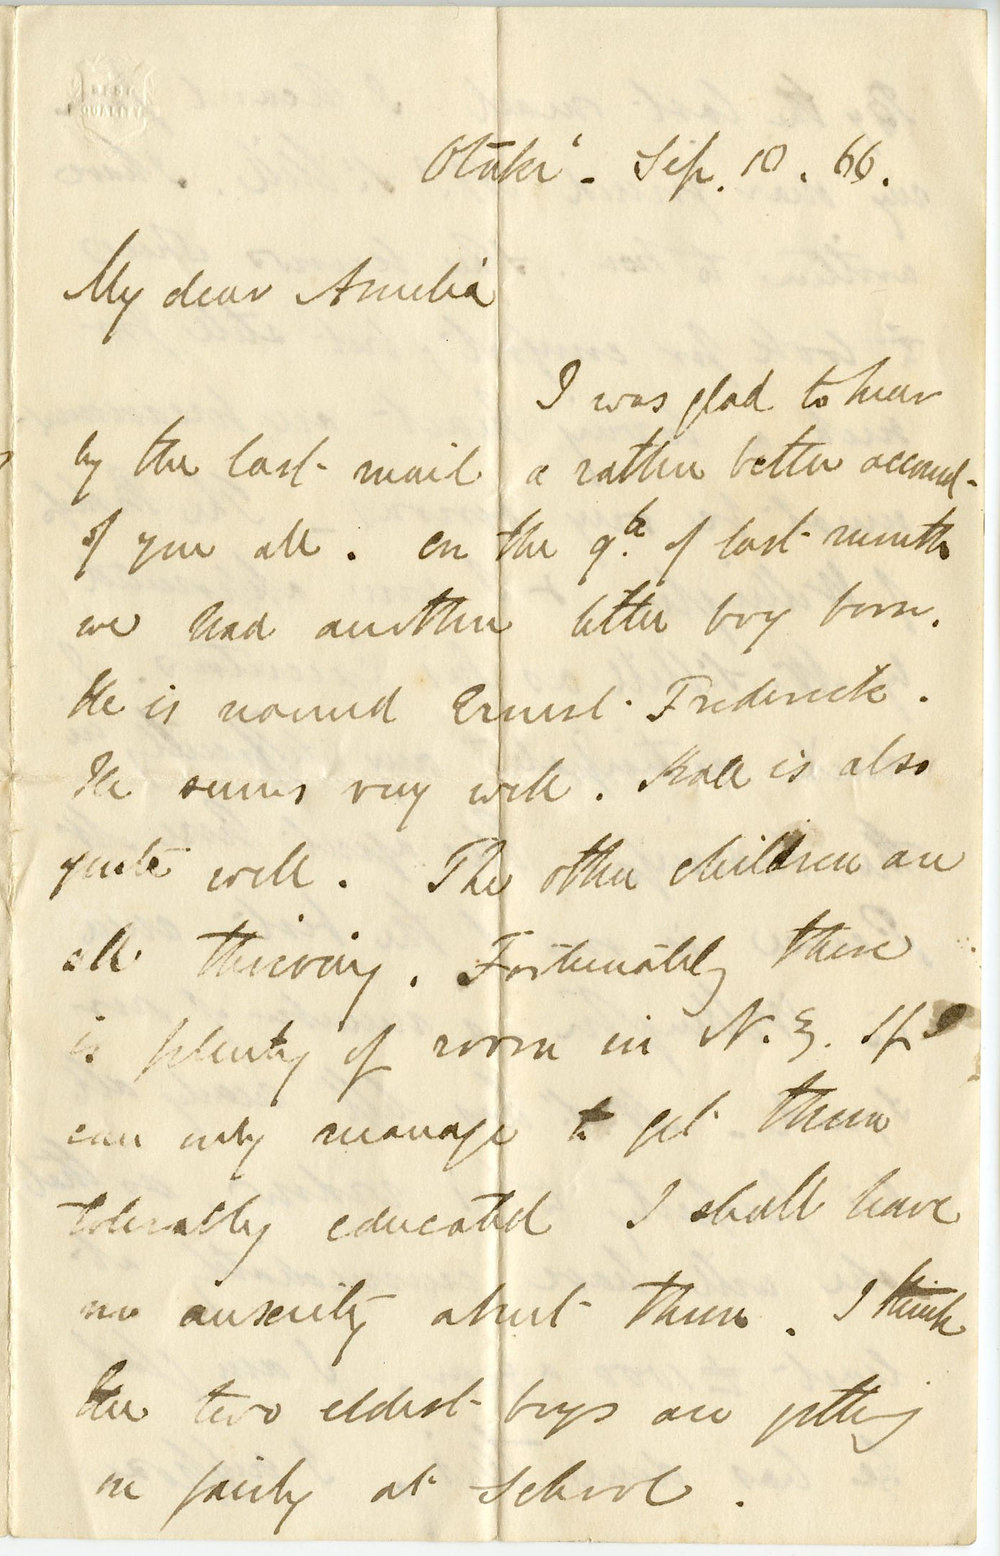 BEST
QUALITY
Otaki - Sep. 10. 66.
My dear Amelia
I was glad to hear
by the last mail a rather better account
of you all. On the 9th of last month
we had another little boy born.
He is named Ernest Frederick.
He seems very well. Kate is also
quite well. The other children are
all thriving. Fortunately there
is plenty of room in N.Z. If I
can only manage to get them
tolerably educated I shall have
no anxiety about them. I think
the two eldest boys are getting
on fairly at School.